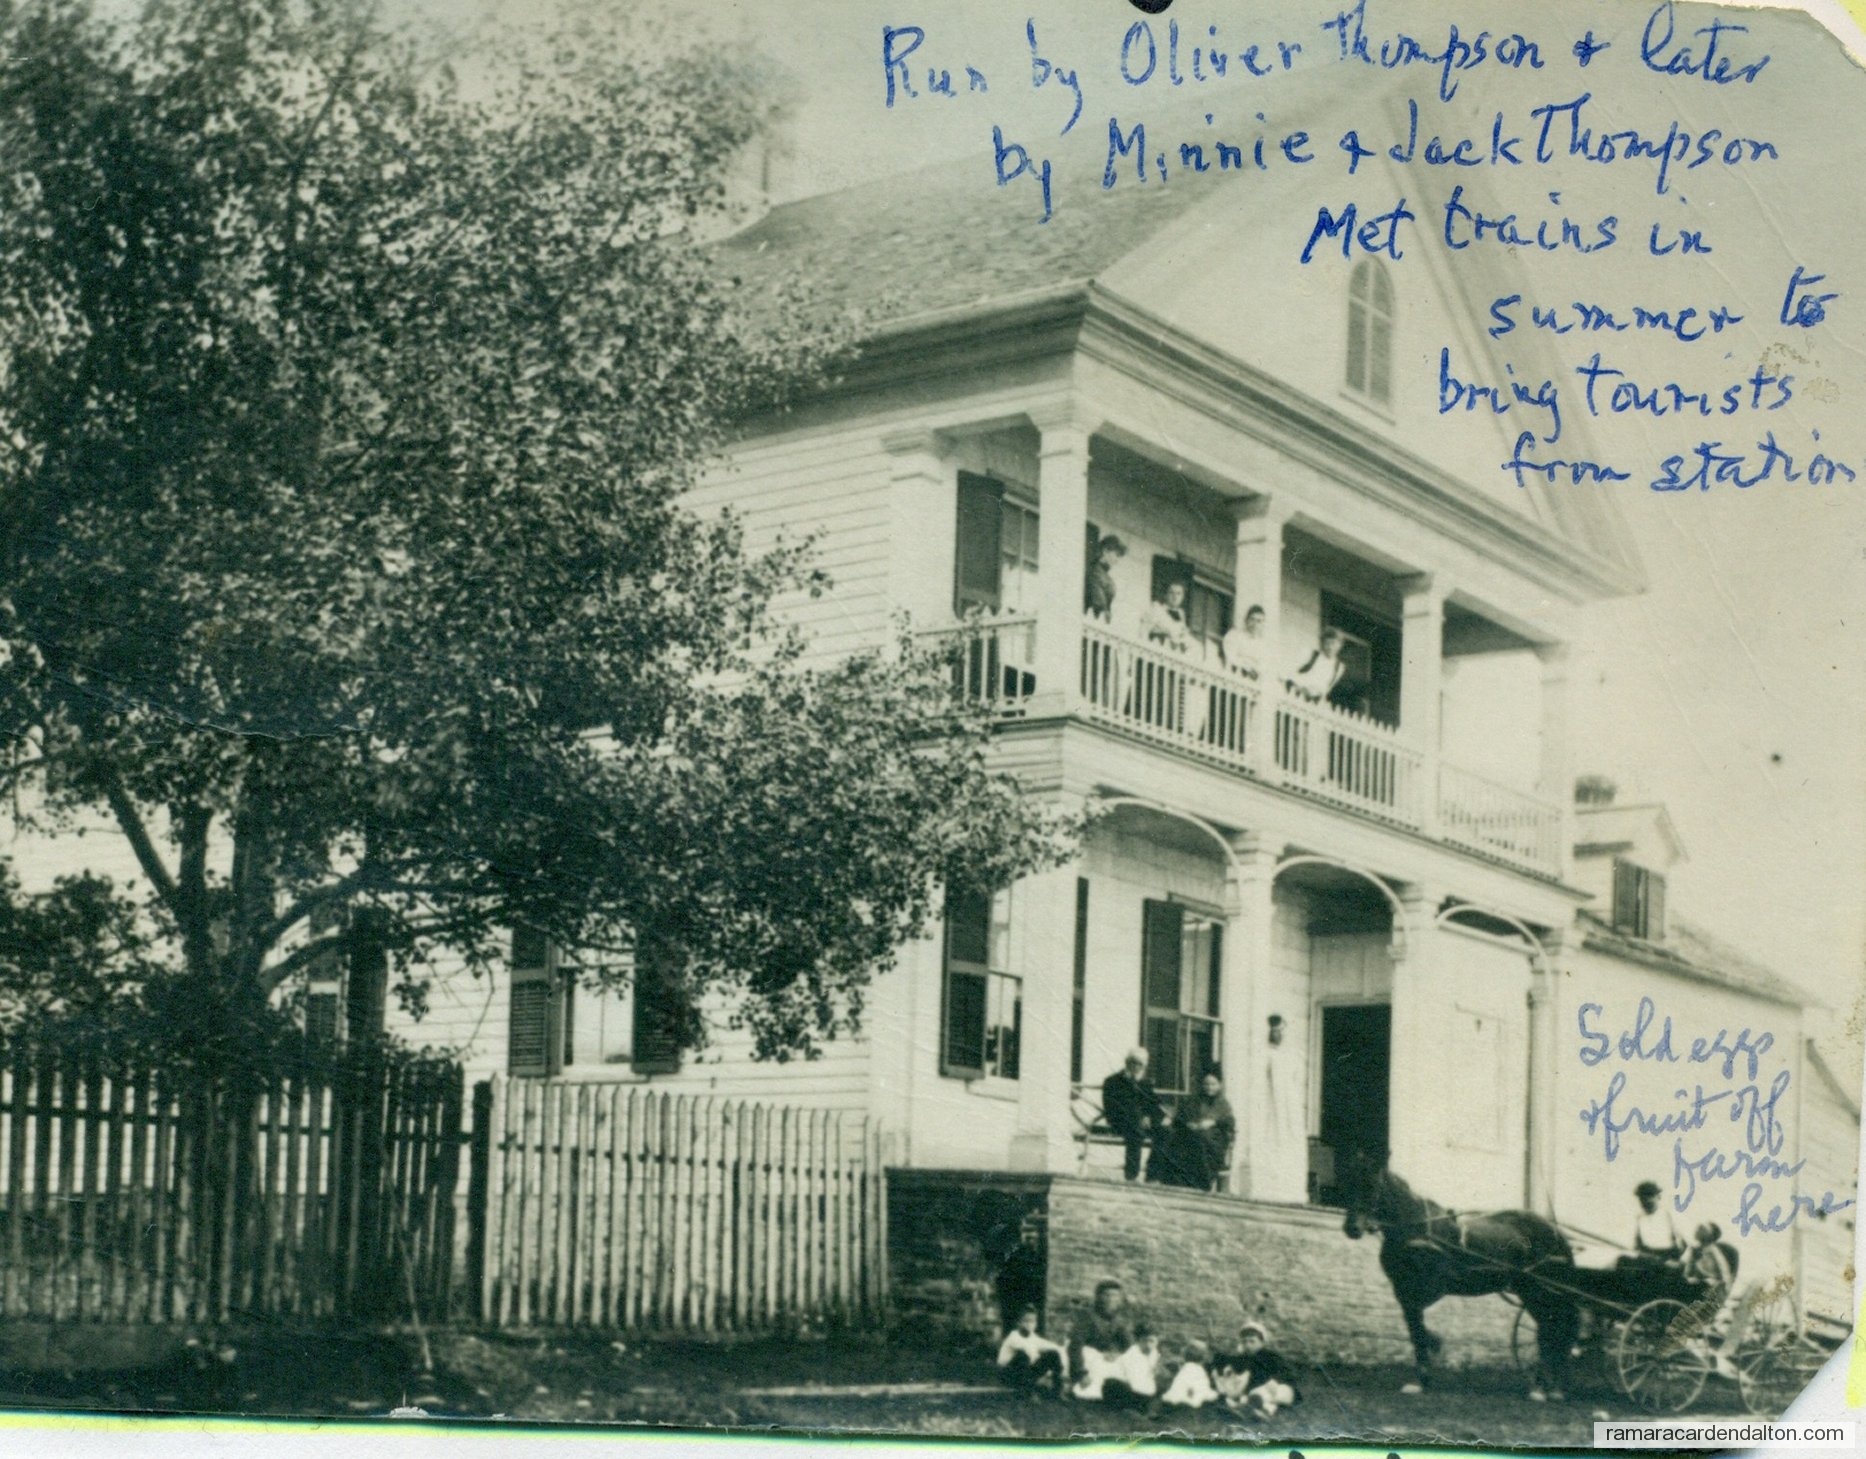 Run by Oliver Thompson & later
by Minnie & Jack Thompson
Met trains in
summer to
bring tourists
from station
Sold eggs
& fruit off
farm
here
ramaracardendalton.com